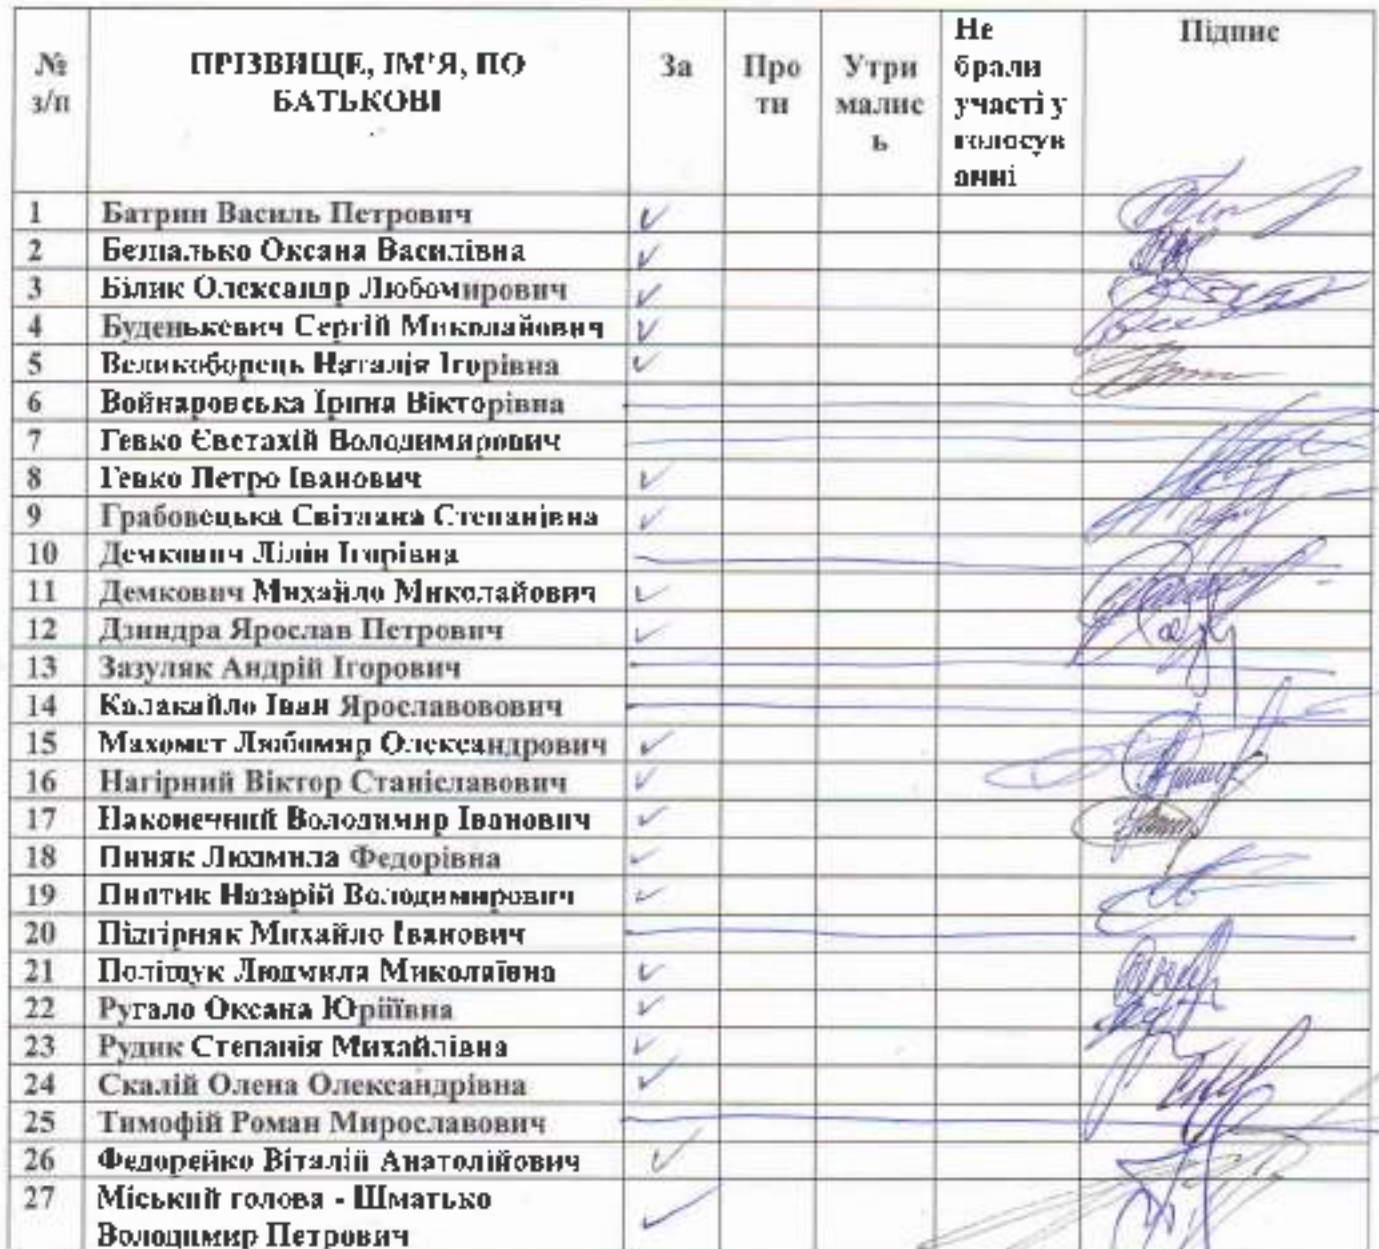 № з/п
ПРІЗВИЩЕ, ІМ'Я, ПО БАТЬКОВІ
За
Про ти
Утри малис ь
Не брали участі у голосув анні
Підпис
1 Батрин Василь Петрович
2 Безпалько Оксана Василівна
3 Білик Олександр Любомирович
4 Буденькевич Сергій Миколайович
5 Великоборець Наталія Ігорівна
6 Войнаровська Ірина Вікторівна
7 Гевко Євстахій Володимирович
8 Гевко Петро Іванович
9 Грабовецька Світлана Степанівна
10 Демкович Лілія Ігорівна
11 Демкович Михайло Миколайович
12 Дзиндра Ярослав Петрович
13 Зазуляк Андрій Ігорович
14 Калакайло Іван Ярославовович
15 Махомет Любомир Олександрович
16 Нагірний Віктор Станіславович
17 Наконечний Володимир Іванович
18 Пиняк Людмила Федорівна
19 Назарій Володимирович
20 Підгірняк Михайло Іванович
21 Поліщук Людмила Миколаївна
22 Ругало Оксана Юріївна
23 Рудик Степанія Михайлівна
24 Скалій Олена Олександрівна
25 Тимофій Роман Мирославович
26 Федорейко Віталій Анатолійович
27 Міський голова - Шматько
Володимир Петрович